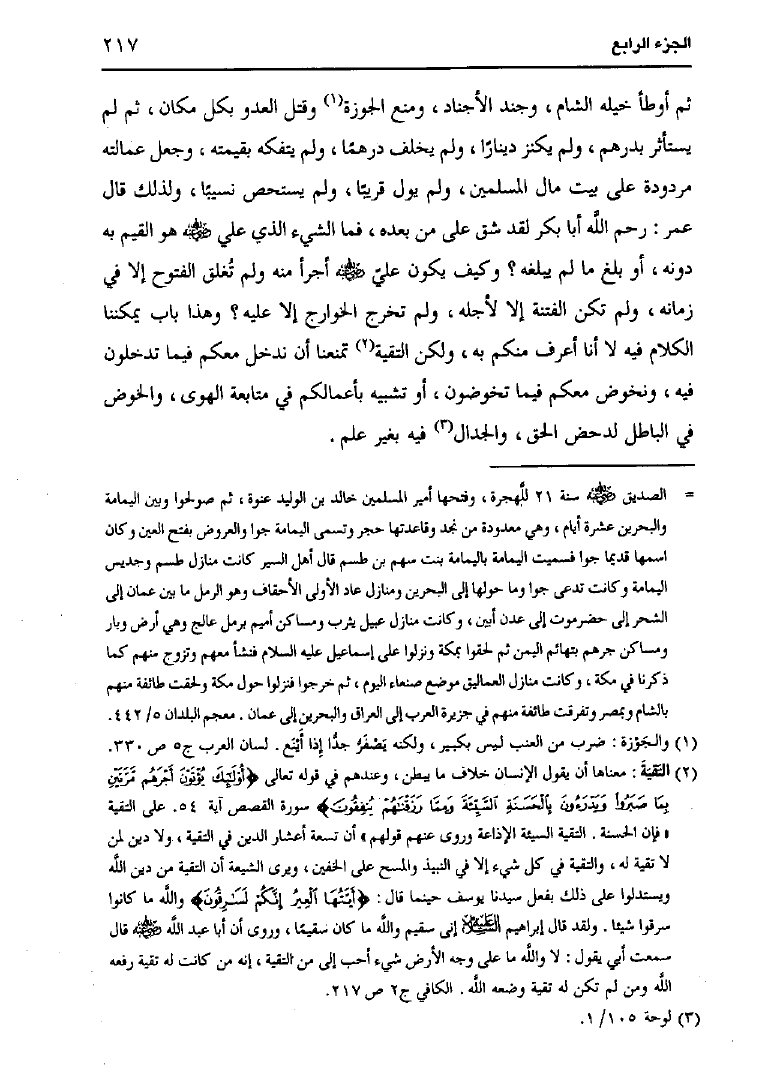 الجزء الرابع ٢١٧
ثم أوطأ خيله الشام ، وجند الأجناد ، ومنع الجوزة(١) وقتل العدو بكل مكان ، ثم لم
يستأثر بدرهم ، ولم يكنز دينارًا ، ولم يخلف درهمًا ، ولم يتفكه بقيمته ، وجعل عمالته
مردودة على بيت مال المسلمين ، ولم يول قريبًا ، ولم يستحص نسيبًا ، ولذلك قال
عمر : رحم اللَّه أبا بكر لقد شق على من بعده ، فما الشيء الذي علي رضي الله عنه هو القيم به
دونه ، أو بلغ ما لم يبلغه ؟ وكيف يكون عليّ رضي الله عنه أجرأ منه ولم تُغلق الفتوح إلا في
زمانه ، ولم تكن الفتنة إلا لأجله ، ولم تخرج الخوارج إلا عليه ؟ وهذا باب يمكننا
الكلام فيه لا أنا أعرف منكم به ، ولكن التقية(٢) تمنعنا أن ندخل معكم فيما تدخلون
فيه ، ونخوض معكم فيما تخوضون ، أو تشبيه بأعمالكم في متابعة الهوى ، والخوض
في الباطل لدحض الحق ، والجدال(٣) فيه بغير علم .
= الصديق رضي الله عنه سنة ٢١ للَّهجرة ، وفتحها أمير المسلمين خالد بن الوليد عنوة ، ثم صولحوا وبين اليمامة
والبحرين عشرة أيام ، وهي معدودة من نجد وقاعدتها حجر وتسمى اليمامة جوا والعروض بفتح العين وكان
اسمها قديما جوا فسميت اليمامة باليمامة بنت سهم بن طسم قال أهل السير كانت منازل طسم وجديس
اليمامة وكانت تدعى جوا وما حولها إلى البحرين ومنازل عاد الأولى الأحقاف وهو الرمل ما بين عمان إلى
الشحر إلى حضرموت إلى عدن أبين ، وكانت منازل عبيل يثرب ومساكن أميم برمل عالج وهي أرض وبار
ومساكن جرهم بتهائم اليمن ثم لحقوا بمكة ونزلوا على إسماعيل عليه السلام فنشأ معهم وتزوج منهم كما
ذكرنا في مكة ، وكانت منازل العماليق موضع صنعاء اليوم ، ثم خرجوا فنزلوا حول مكة ولحقت طائفة منهم
بالشام وبمصر وتفرقت طائفة منهم في جزيرة العرب إلى العراق والبحرين إلى عمان . معجم البلدان ٥/ ٤٤٢.
(١) والجَوْزة : ضرب من العنب ليس بكبير ، ولكنه يَصْفَرُ جدًّا إذا أَيْنَع . لسان العرب ج٥ ص ٣٣٠.
(٢) التقيَة : معناها أن يقول الإنسان خلاف ما يبطن ، وعندهم في قوله تعالى ﴿أُوْلَٰٓئِكَ يُؤْتَوْنَ أَجْرَهُم مَّرَّتَيْنِ
بِمَا صَبَرُواْ وَيَدْرَءُونَ بِٱلْحَسَنَةِ ٱلسَّيِّئَةَ وَمِمَّا رَزَقْنَٰهُمْ يُنفِقُونَ﴾ سورة القصص آية ٥٤. على التقية
« فإن الحسنة . التقية السيئة الإذاعة وروى عنهم قولهم » أن تسعة أعشار الدين في التقية ، ولا دين لمن
لا تقية له ، والتقية في كل شيء إلا في النبيذ والمسح على الخفين ، ويرى الشيعة أن التقية من دين اللَّه
ويستدلوا على ذلك بفعل سيدنا يوسف حينما قال : ﴿أَيَّتُهَا ٱلْعِيرُ إِنَّكُمْ لَسَٰرِقُونَ﴾ واللَّه ما كانوا
سرقوا شيئا . ولقد قال إبراهيم عليه السلام إنى سقيم واللَّه ما كان سقيمًا ، وروى أن أبا عبد اللَّه رضي الله عنه قال
سمعت أبي يقول : لا واللَّه ما على وجه الأرض شيء أحب إلى من التقية ، إنه من كانت له تقية رفعه
اللَّه ومن لم تكن له تقية وضعه اللَّه . الكافي ج٢ ص ٢١٧.
(٣) لوحة ١٠٥/ ١.